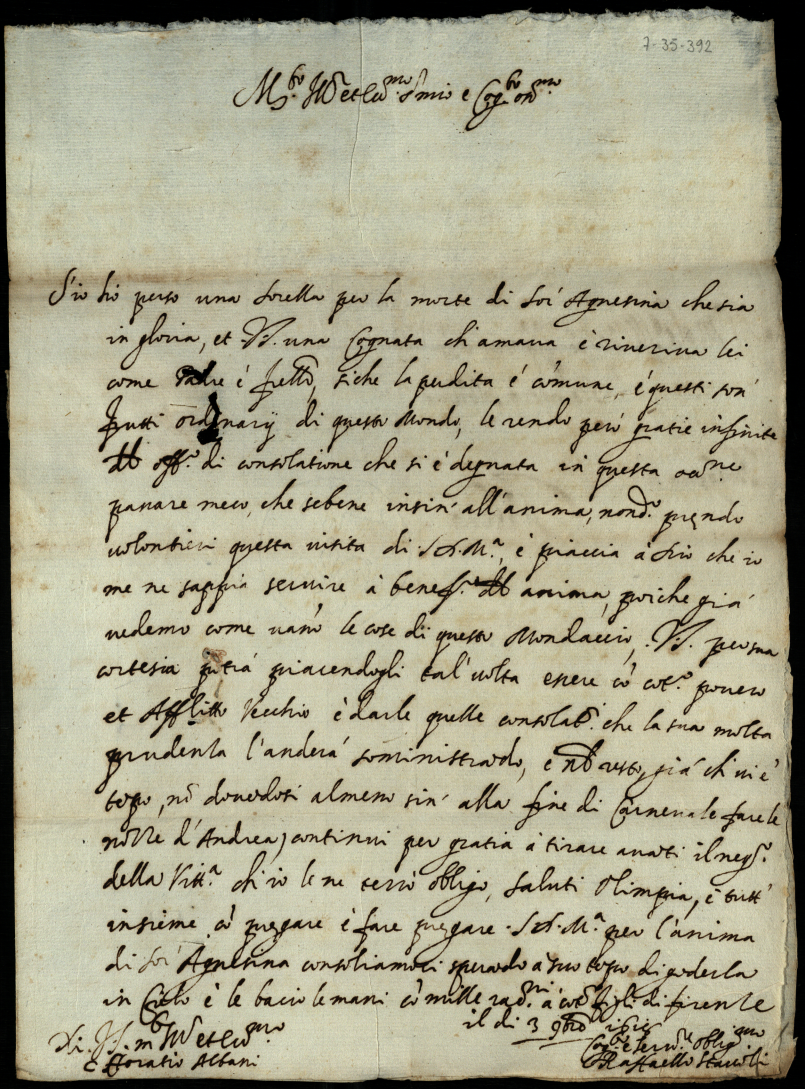 7-35-392
M.to Ill.re et Ecc.mo S.r mio e Cog.to oss.mo
S'io hò perso una sorella per la morte di Sor' Agnesina che sia
in gloria, et V.S. una Cognata ch'amava è riveriva lei
come Padre è frēllo, siche la perdita é cōmune, é questi son'
frutti ordinarij di questo Mondo, le rendo però gratie infinite
dell' off.o di consolatione che si è degnata in questa occ.ne
passare meco, che sebene insin' all'anima, nond.o prendo
volontieri questa visita di S.D.M.a, è piaccia à Dio che io
me ne sappia servire à benef.o dell' anima, poiche già
vedemo come vanō le cose di questo Mondaccio, V.S. per sua
cortesia potrà piacendogli tal' volta essere cō cot.o povero
et Afflitto Vecchio è darle quelle consolat.i che la sua molta
prudenza l'anderà somministrādo, e nel resto, già ch'vi é
tēpo, nō dovēdosi almeno sin' alla fine di Carnevale fare le
nozze d'Andrea, continui per gratia à tirare avāti il neg.o
della Vitt.a ch'io le ne terrò obligo, saluti Olimpia, è tutt'
insieme cō pregare è fare pregare S.D.M.a per l'anima
di Sor' Agnesina consoliamoci sperādo à suo tēpo di goderla
in Cielo è le bacio le mani cō mille rac.ni à cot.i figli di firenze
il dì 3 9bre
Di V.S. m.to Ill.re et Ecc.ma
Cog.to è Serv.re Oblig.mo
S. Horatio Albani
Raffaello Staccoli